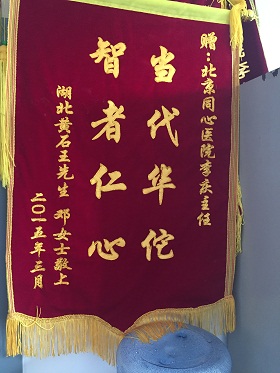 赠：北京同心医院李庆主任
当代华佗
智者仁心
湖北黄石王先生 邓女士敬上
二〇一五年三月